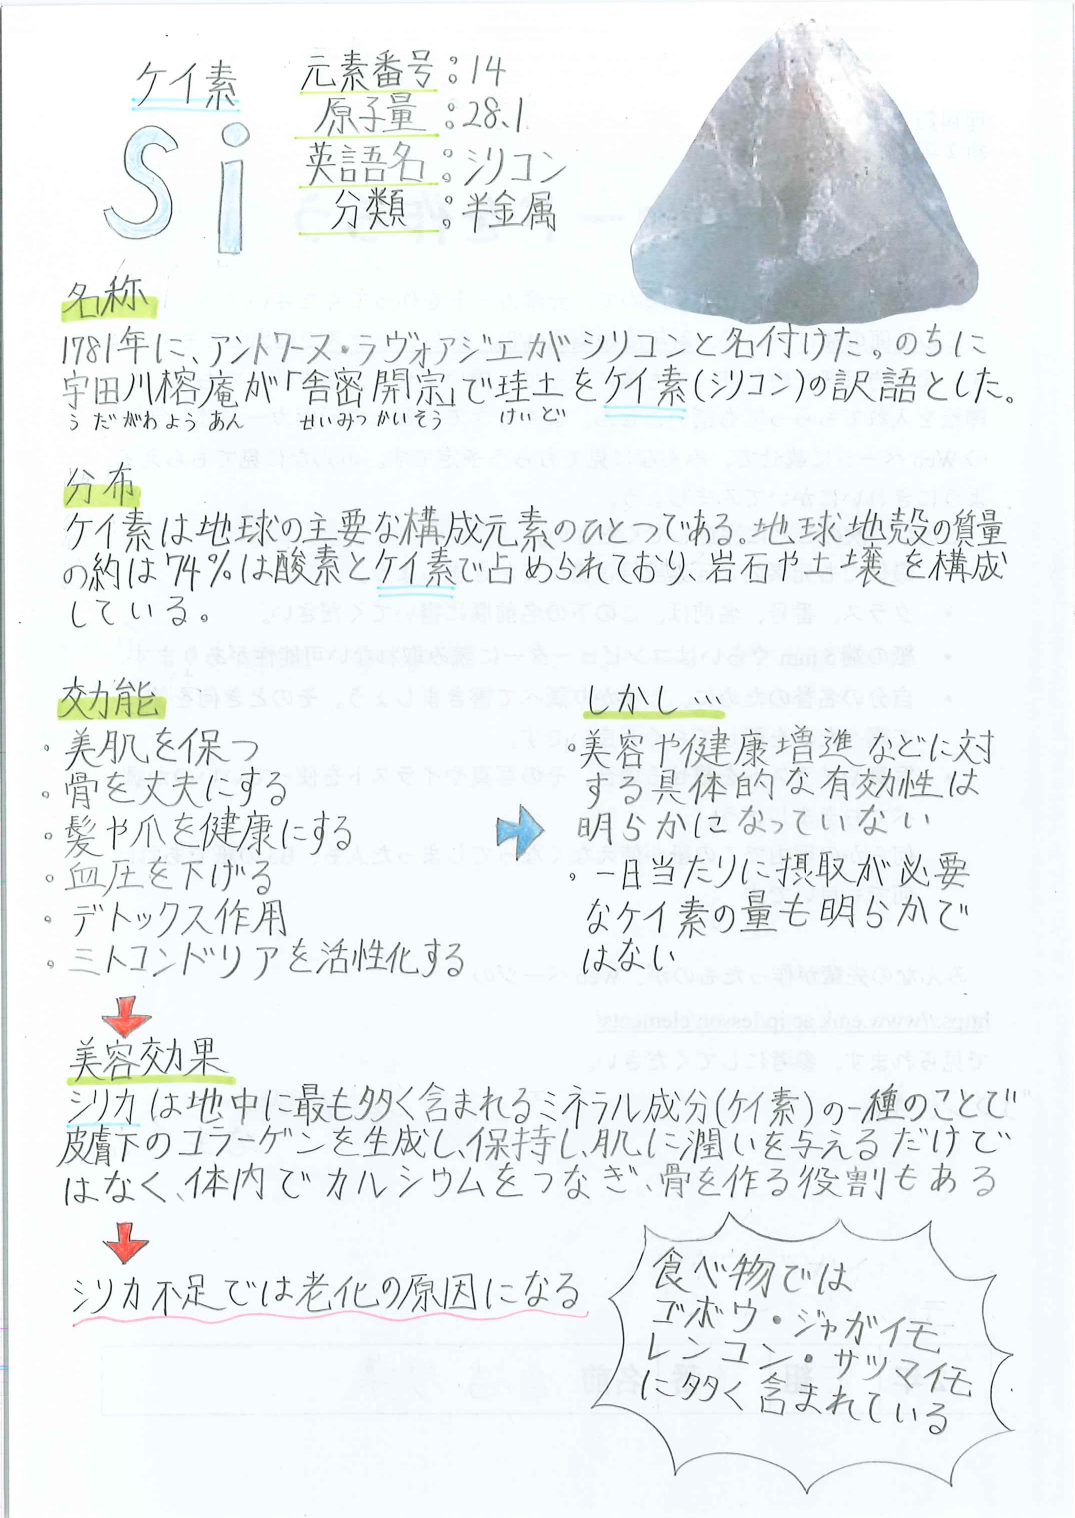 ケイ素
Si
元素番号：14
原子量：28.1
英語名：シリコン
分類：半金属
名称
1781年に、アントワーヌ・ラヴォアジエがシリコンと名付けた。のちに
宇田川榕庵が「舎密開宗」で珪土をケイ素(シリコン)の訳語とした。
うだがわようあん せいみつかいそう けいど
分布
ケイ素は地球の主要な構成元素のひとつである。地球地殻の質量
の約は74％は酸素とケイ素で占められており、岩石や土壌を構成
している。
効能
。美肌を保つ
。骨を丈夫にする
。髪や爪を健康にする
。血圧を下げる
。デトックス作用
。ミトコンドリアを活性化する
しかし…
。美容や健康増進などに対
する具体的な有効性は
明らかになっていない
。一日当たりに摂取が必要
なケイ素の量も明らかで
はない
美容効果
シリカは地中に最も多く含まれるミネラル成分(ケイ素)の一種のことで
皮膚下のコラーゲンを生成し、保持し、肌に潤いを与えるだけで
はなく、体内でカルシウムをつなぎ、骨を作る役割もある
シリカ不足では老化の原因になる
食べ物では
ゴボウ・ジャガイモ
レンコン・サツマイモ
に多く含まれている